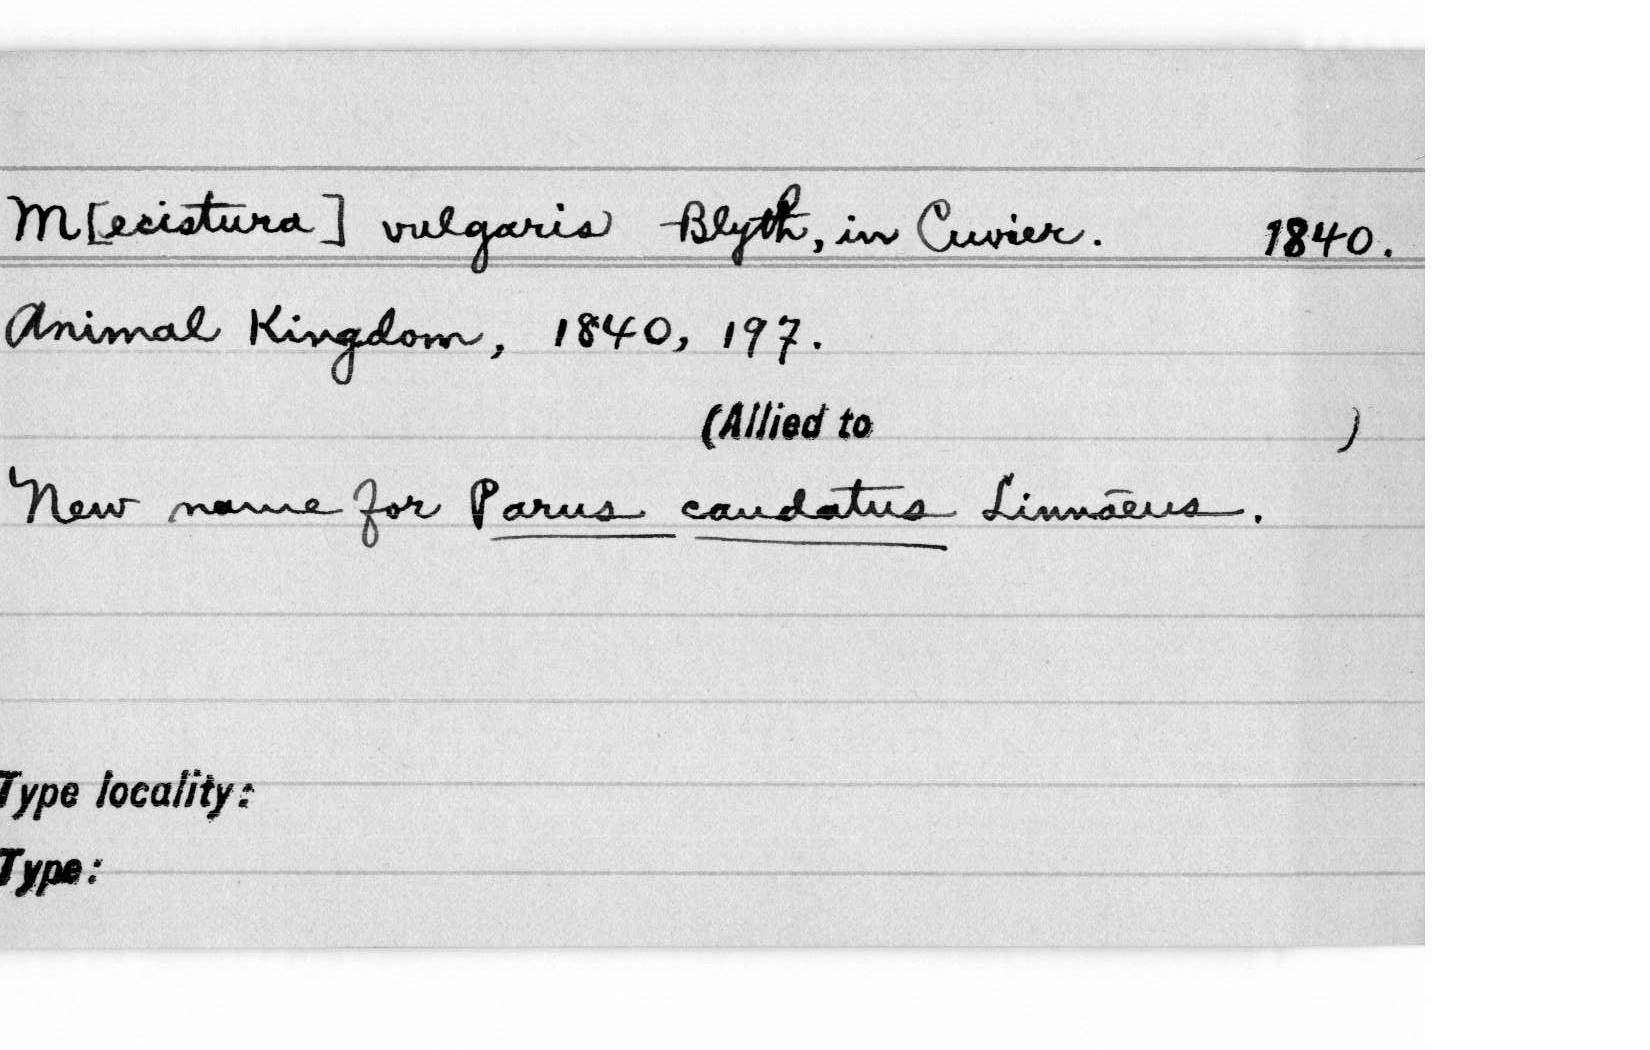 M[ecistura] vulgaris Blyth, in Cuvier. 1840.
Animal Kingdom, 1840, 197.
(Allied to )
New name for Parus caudatus Linnaeus.
Type locality:
Type: